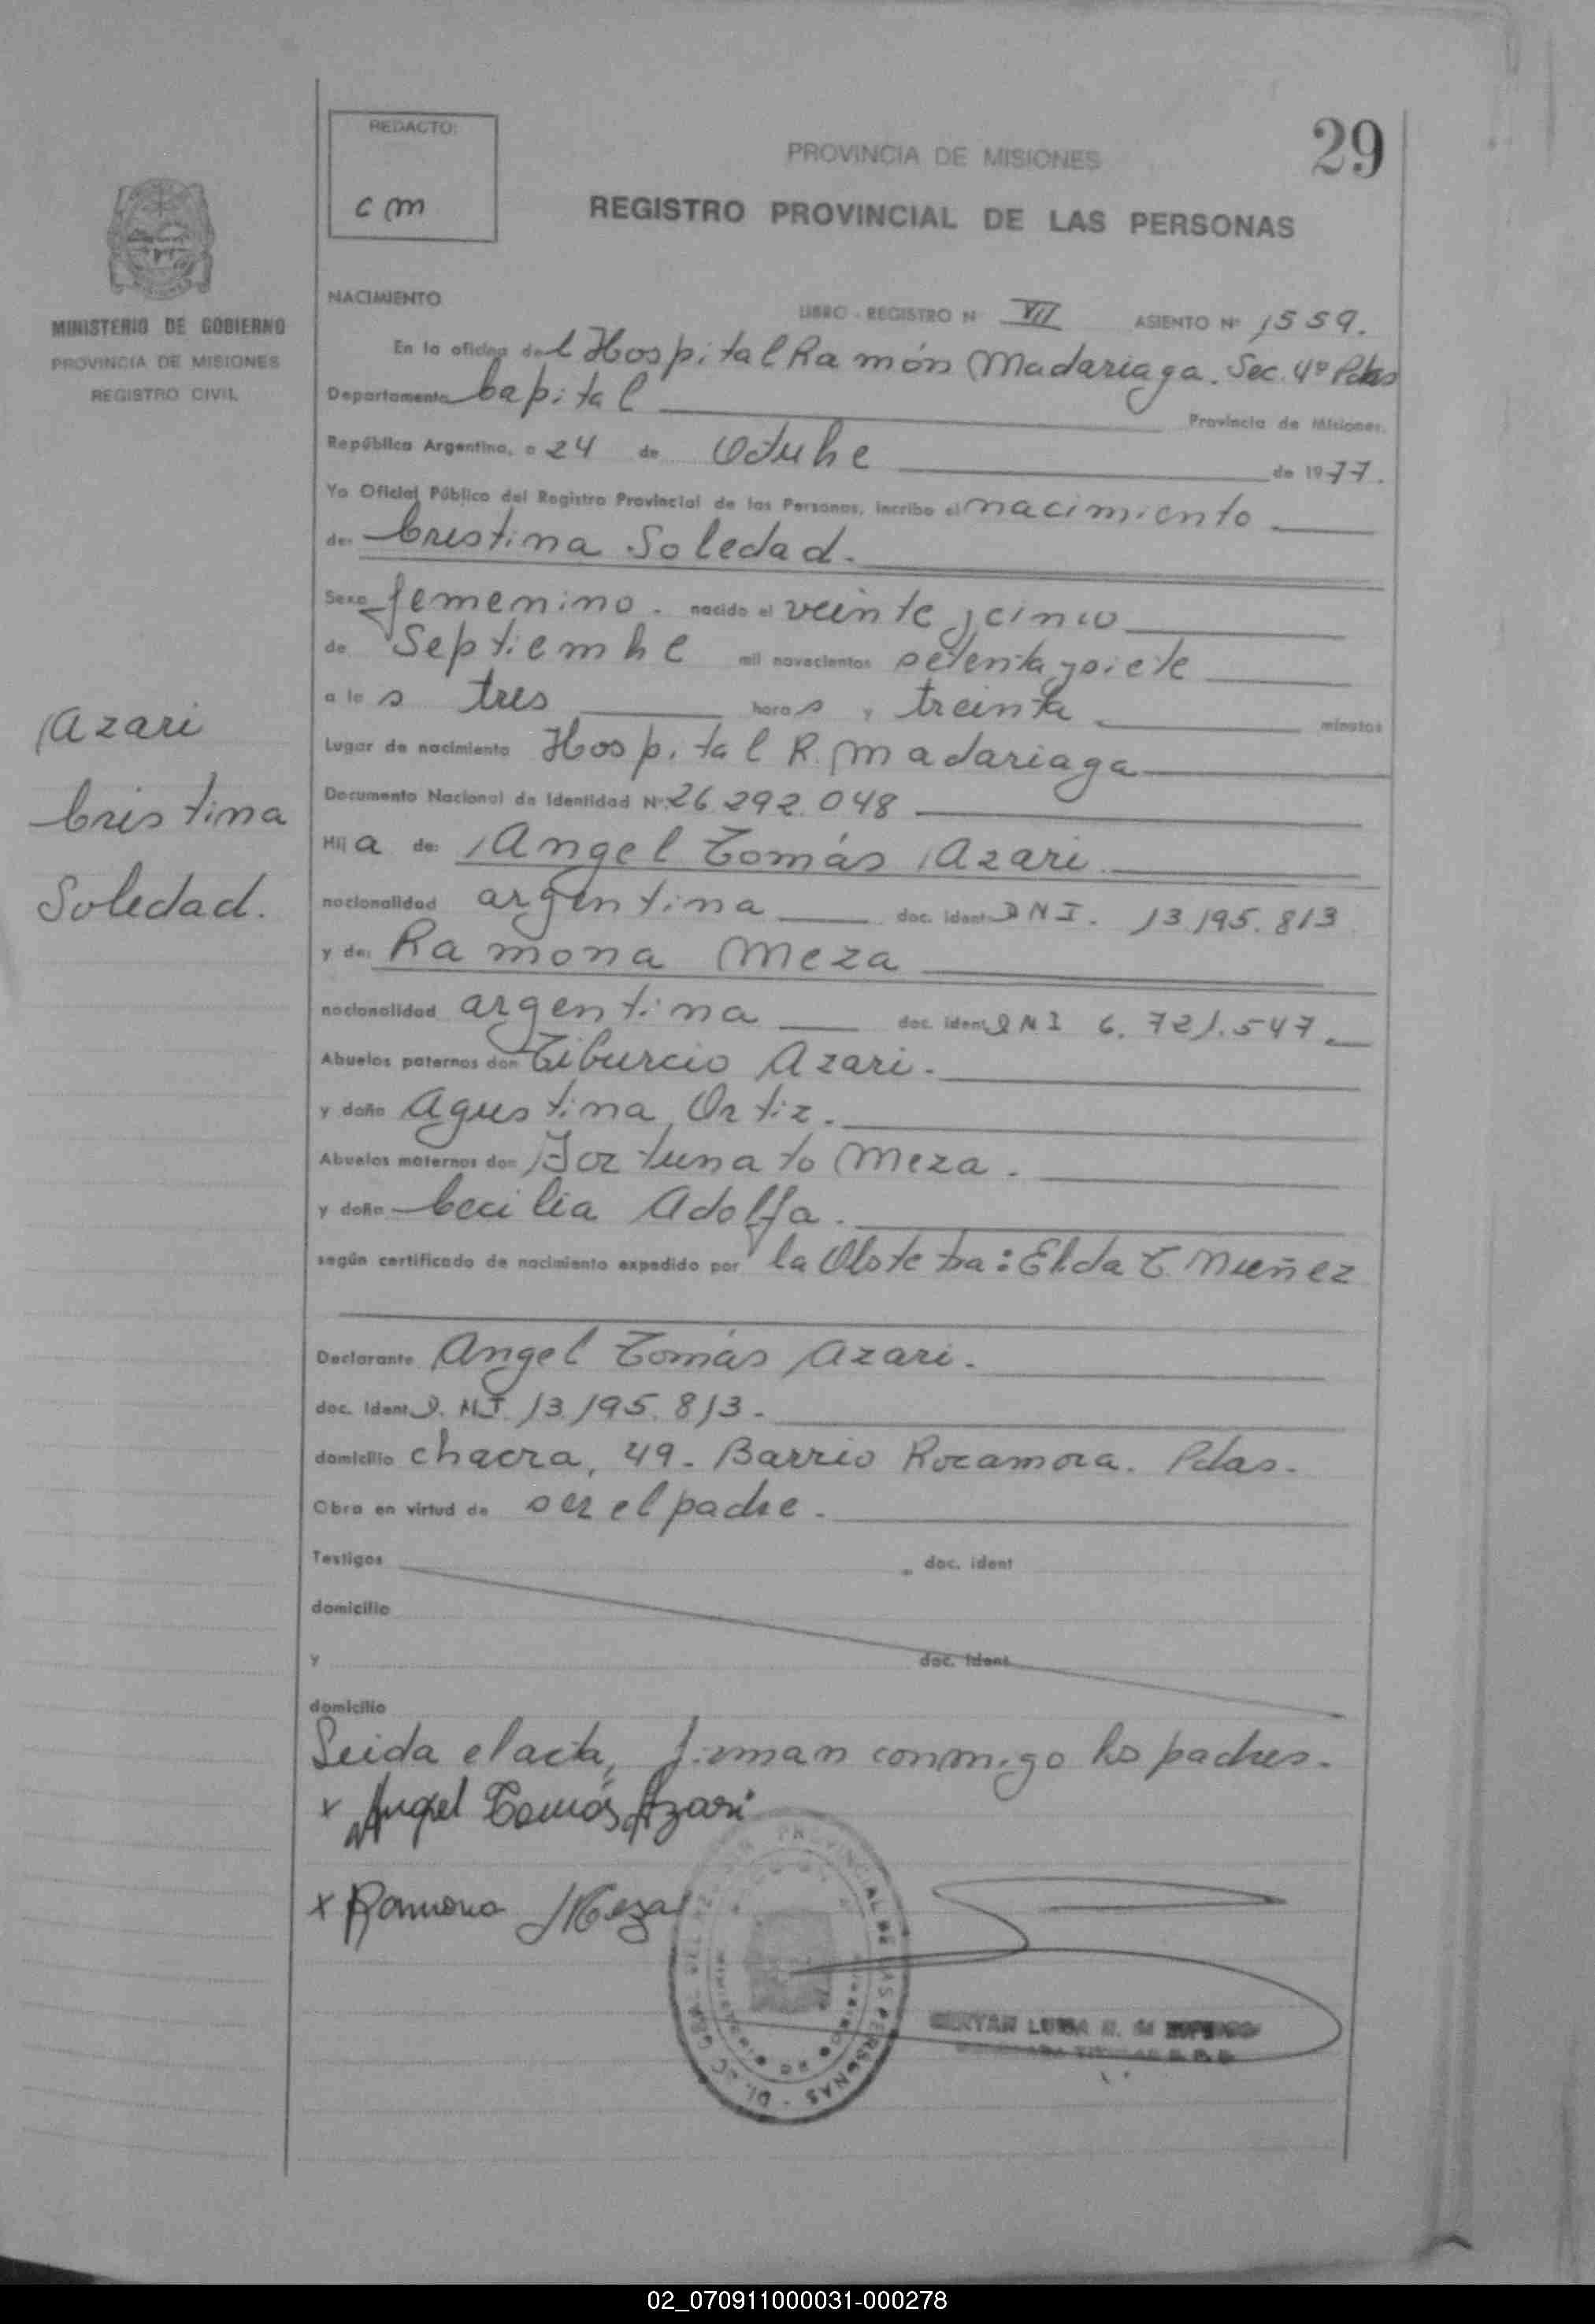 REDACTO:
cm
PROVINCIA DE MISIONES
29
REGISTRO PROVINCIAL DE LAS PERSONAS
MINISTERIO DE GOBIERNO
PROVINCIA DE MISIONES
REGISTRO CIVIL
NACIMIENTO
LIBRO - REGISTRO Nº VII ASIENTO Nº 1559.
En la oficina del Hospital Ramón Madariaga. Sec. 4º Pdas
Departamento Capital Provincia de Misiones.
República Argentina, a 24 de Octubre de 1977.
Yo Oficial Público del Registro Provincial de las Personas, incribo el nacimiento
de: Cristina Soledad.
Sexo femenino. nacido el veinte y cinco
de Septiembre mil novecientos setenta y siete
a las tres horas y treinta minutos
Lugar de nacimiento Hospital R. Madariaga
Documento Nacional de Identidad Nº 26.292.048
Hija de: Angel Tomás Azari
nacionalidad argentina doc. ident. DNI. 13.195.813
y de: Ramona Meza
nacionalidad argentina doc. ident. DNI 6.721.547.
Abuelos paternos don Tiburcio Azari.
y doña Agustina Ortiz.
Abuelos maternos don Fortunato Meza.
y doña Cecilia Adolfa.
según certificado de nacimiento expedido por la Obstetra: Elida T. Nuñez
Declarante Angel Tomás Azari.
doc. ident. D.NI. 13.195.813.
domicilio chacra, 49. Barrio Rocamora. Pdas.
Obra en virtud de ser el padre.
Testigos doc. ident
domicilio
y doc. ident
domicilio
Leida el acta, firman conmigo los padres.
x Angel Tomás Azari
x Ramona Meza
Azari
Cristina
Soledad.
PROVINCIAL DE LAS PERSONAS
02_070911000031-000278